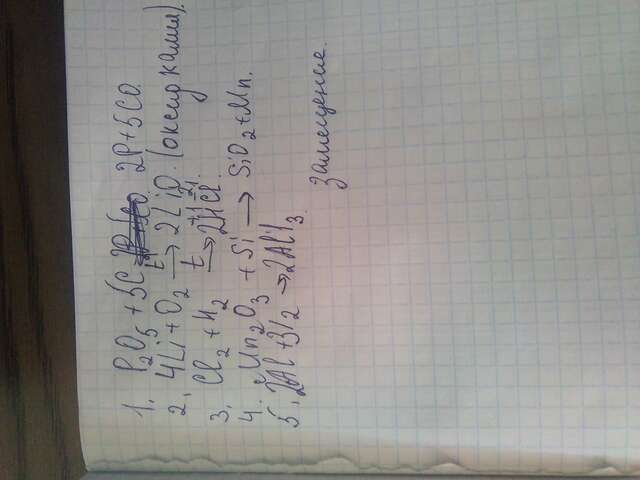 1. P2O5 + 5C 2P+5CO.
2. 4Li + O2 t→ 2LiO. (оксид калия).
3. Cl2 + H2 t→ 2HCl. +1 -1
4. Mn2O3 + Si → SiO2 + Mn.
5. 2Al + 3I2 → 2AlI3.
замещение.